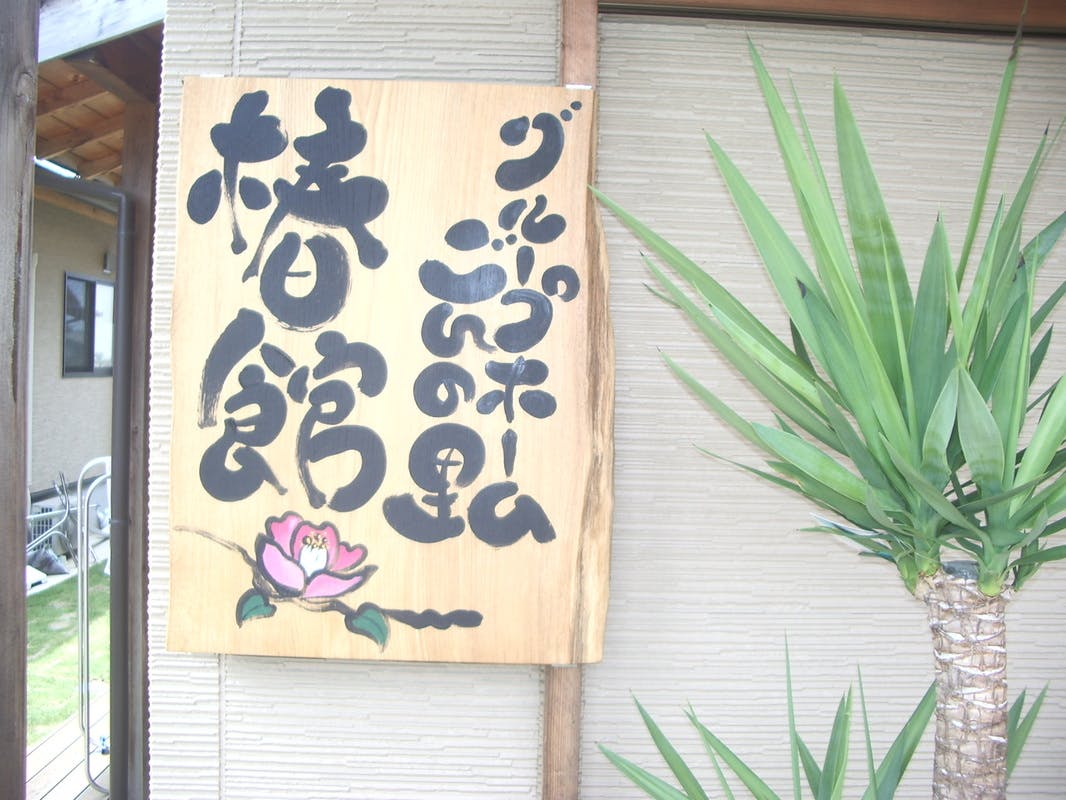 グループホーム
ごんの里
椿館